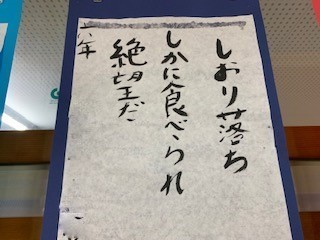 しおり落ち
しかに食べられ
絶望だ